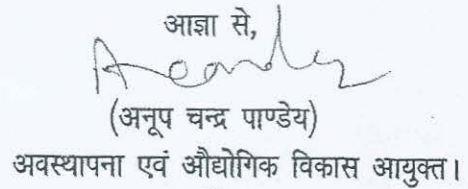 आज्ञा से,
(अनूप चन्द्र पाण्डेय)
अवस्थापना एवं औद्योगिक विकास आयुक्त।